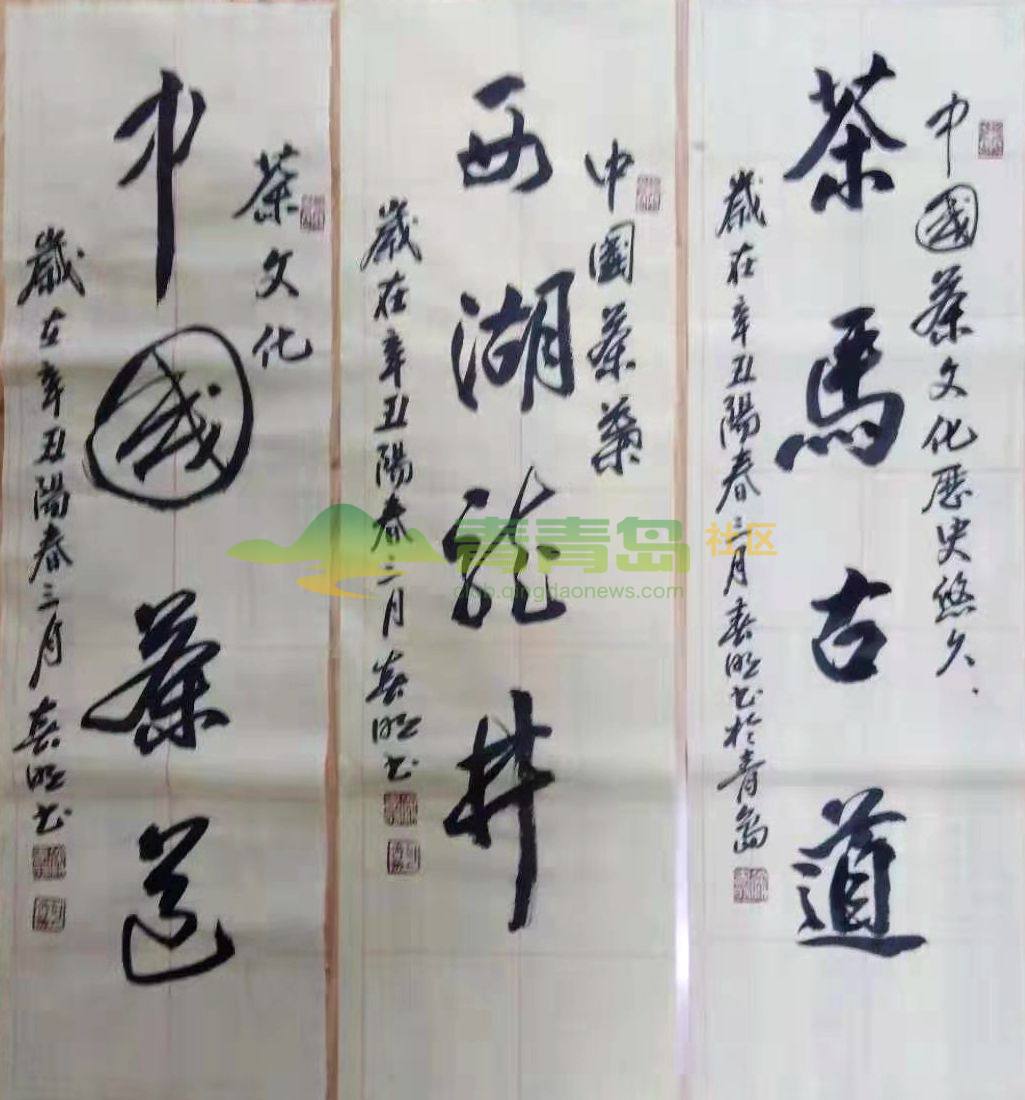 中國茶文化歷史悠久
茶馬古道
歲在辛丑陽春三月春旺书於青島
中國茶葉
西湖龍井
歲在辛丑陽春三月春旺书
茶文化
中國茶道
歲在辛丑陽春三月春旺书
青青岛社区
club.qingdaonews.com